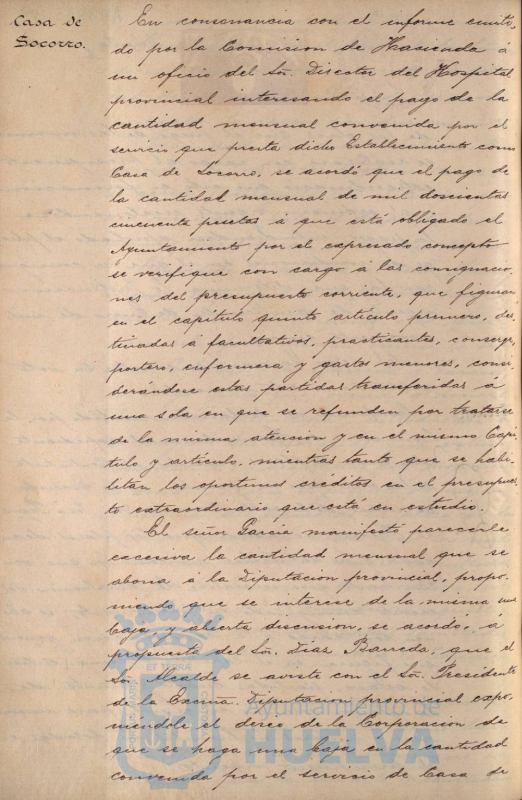 Casa de
Socorro.
En consonancia con el informe emiti-
do por la Comision de Hacienda á
un oficio del Sr. Director del Hospital
provincial interesando el pago de la
cantidad mensual convenida por el
servicio que presta dicho Establecimiento como
Casa de Socorro, se acordó que el pago de
la cantidad mensual de mil doscientas
cincuenta pesetas á que está obligado el
Ayuntamiento por el expresado concepto
se verifique con cargo á las consignacio-
nes del presupuesto corriente, que figuran
en el capítulo quinto artículo primero, des-
tinadas a facultativos, practicantes, conserge,
portero, enfermera y gastos menores, consi-
derándose estas partidas transferidas á
una sola en que se refunden por tratarse
de la misma atencion y en el mismo Capí-
tulo y artículo, mientras tanto que se habi-
litan los oportunos créditos en el presupues-
to extraordinario que está en estudio.
El señor García manifestó parecerle
excesiva la cantidad mensual que se
abona á la Diputacion provincial, propo-
niendo que se interese de la misma una
baja, y abierta discusion, se acordó, á
propuesta del Sr. Diaz Barreda, que el
Sr. Alcalde se aviste con el Sr. Presidente
de la Excma. Diputacion provincial expo-
niéndole el deseo de la Corporacion de
que se haga una baja en la cantidad
convenida por el servicio de Casa de
Ayuntamiento de
HUELVA